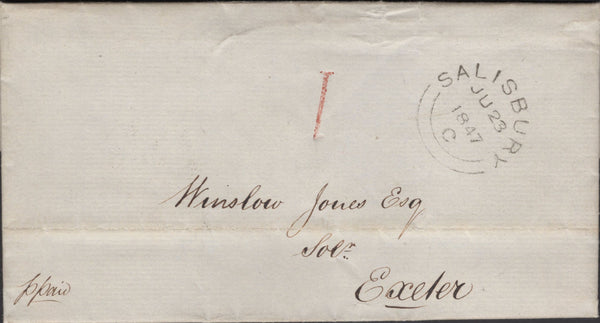 1
SALISBURY
JU 23
1847
C
Winslow Jones Esq
Solr.
Exeter
ppaid